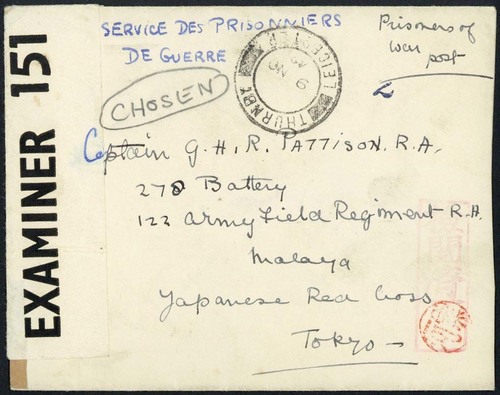 EXAMINER 151
SERVICE DES PRISONNIERS
DE GUERRE
Prisoners of
war
post
CHOSEN
THURNBY LEICESTER
Captain G.H.R. PATTISON. R.A.
278 Battery
122 Army Field Regiment R.A.
Malaya
Japanese Red Cross
Tokyo